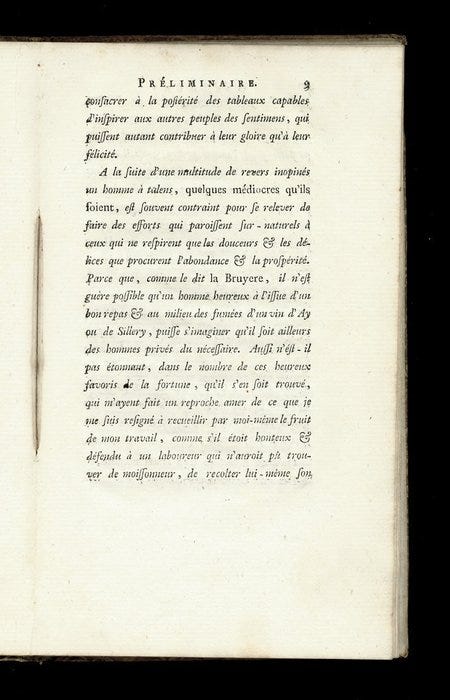 PRÉLIMINAIRE. 9
consacrer à la postérité des tableaux capables
d'inspirer aux autres peuples des sentimens, qui
puissent autant contribuer à leur gloire qu'à leur
félicité.
A la suite d'une multitude de revers inopinés
un homme à talens, quelques médiocres qu'ils
soient, est souvent contraint pour se relever de
faire des efforts qui paroissent sur-naturels à
ceux qui ne respirent que les douceurs & les dé-
lices que procurent l'abondance & la prospérité.
Parce que, comme le dit la Bruyere, il n'est
guère possible qu'un homme heureux à l'issue d'un
bon repas & au milieu des fumées d'un vin d'Ay
ou de Sillery, puisse s'imaginer qu'il soit ailleurs
des hommes privés du nécessaire. Aussi n'est-il
pas étonnant, dans le nombre de ces heureux
favoris de la fortune, qu'il s'en soit trouvé,
qui m'ayent fait un reproche amer de ce que je
me suis resigné à recueillir par moi-même le fruit
de mon travail, comme s'il étoit honteux &
défendu à un laboureur qui n'auroit pû trou-
ver de moissonneur, de recolter lui-même son